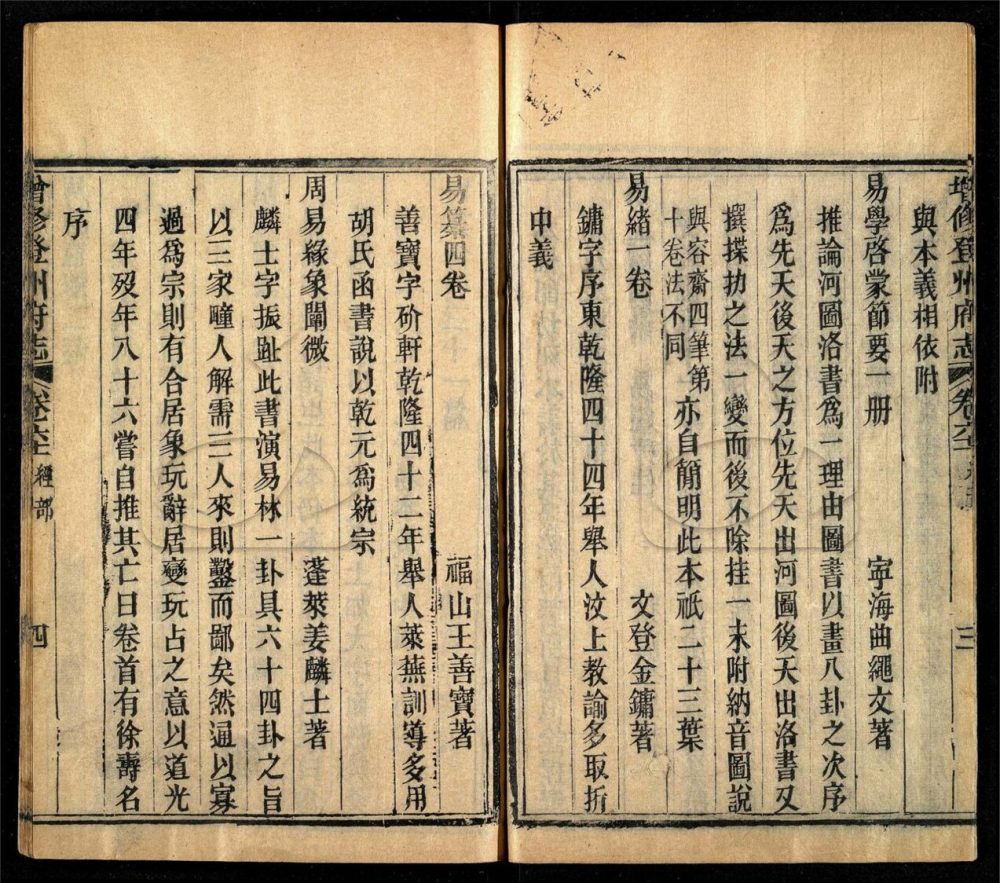 增修登州府志 卷六十一 三
與本義相依附
易學啓蒙節要一册 寧海曲繩文著
推論河圖洛書爲一理由圖書以畫八卦之次序
爲先天後天之方位先天出河圖後天出洛書又
撰揲扐之法一變而後不除挂一末附納音圖說
與容齋四筆第十卷法不同 亦自簡明此本祇二十三葉
易緒一卷 文登金鏞著
鏞字序東乾隆四十四年舉人汶上教諭多取折
中義
易纂四卷 福山王善寶著
善寶字斺軒乾隆四十二年舉人萊蕪訓導多用
胡氏函書說以乾元爲統宗
周易緣象闡微 蓬萊姜麟士著
麟士字振趾此書演易林一卦具六十四卦之旨
以三家疃人解需三人來則鑿而鄙矣然逼以寡
過爲宗則有合居象玩辭居變玩占之意以道光
四年歿年八十六嘗自推其亡日卷首有徐壽名
序
增修登州府志 經部 四